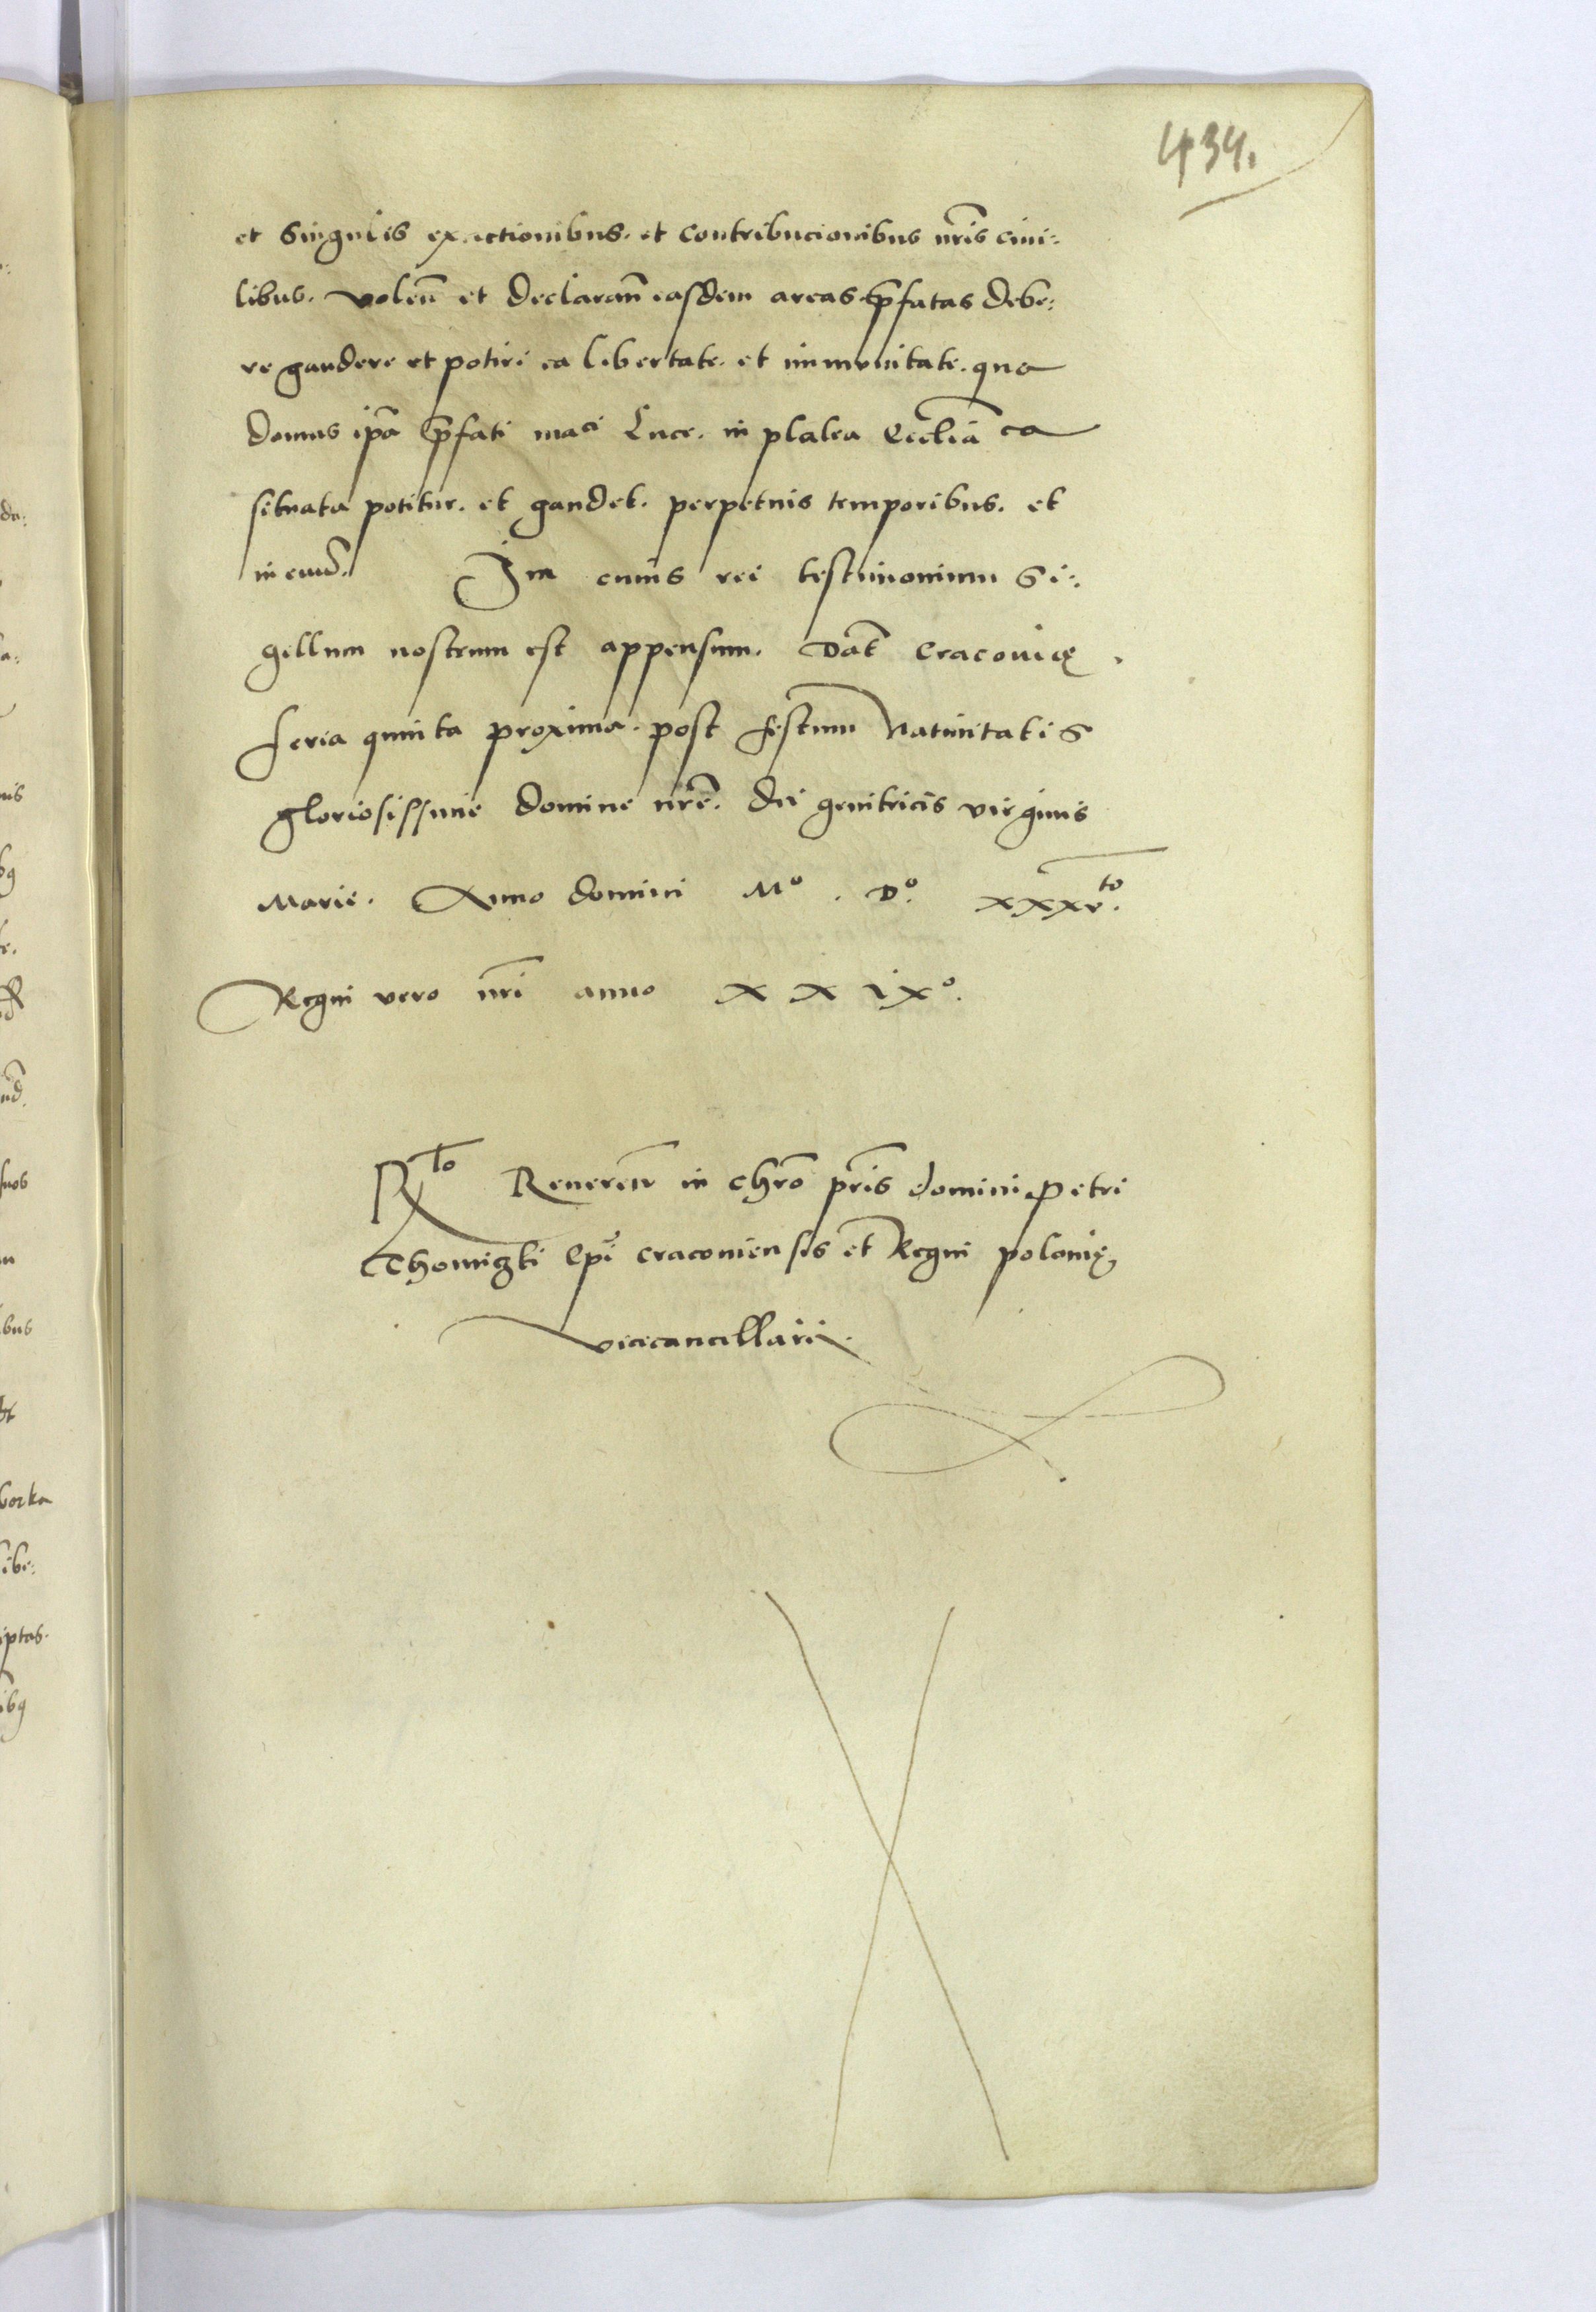 434.
et singulis exactionibus. et contribucionibus nr̃is ciui:
libus. volen̄ et declaran̄ easdem areas p̄fatas debe:
re gaudere et potiri ea libertate. et immunitate. qua
domus ip̄a p̄fati maci Luce. in platea
situata potitur. et gaudet. perpetuis temporibus. et
in euū. In cuius rei testimonium Si:
gillum nostrum est appensum. Dat̄ Cracouię.
feria quinta proxima. post festum Natiuitatis
gloriosissime domine nr̃e. dei genitricis virginis
Marie. Anno domini Mº. Dº. xxxvto.
Regni vero nr̃i anno xxixº.
Rto Reueren̄ in chr̄o pr̄is domini Petri
Thomiczki Ep̄i cracouiensis et Regni polonię
vicecancellarij.